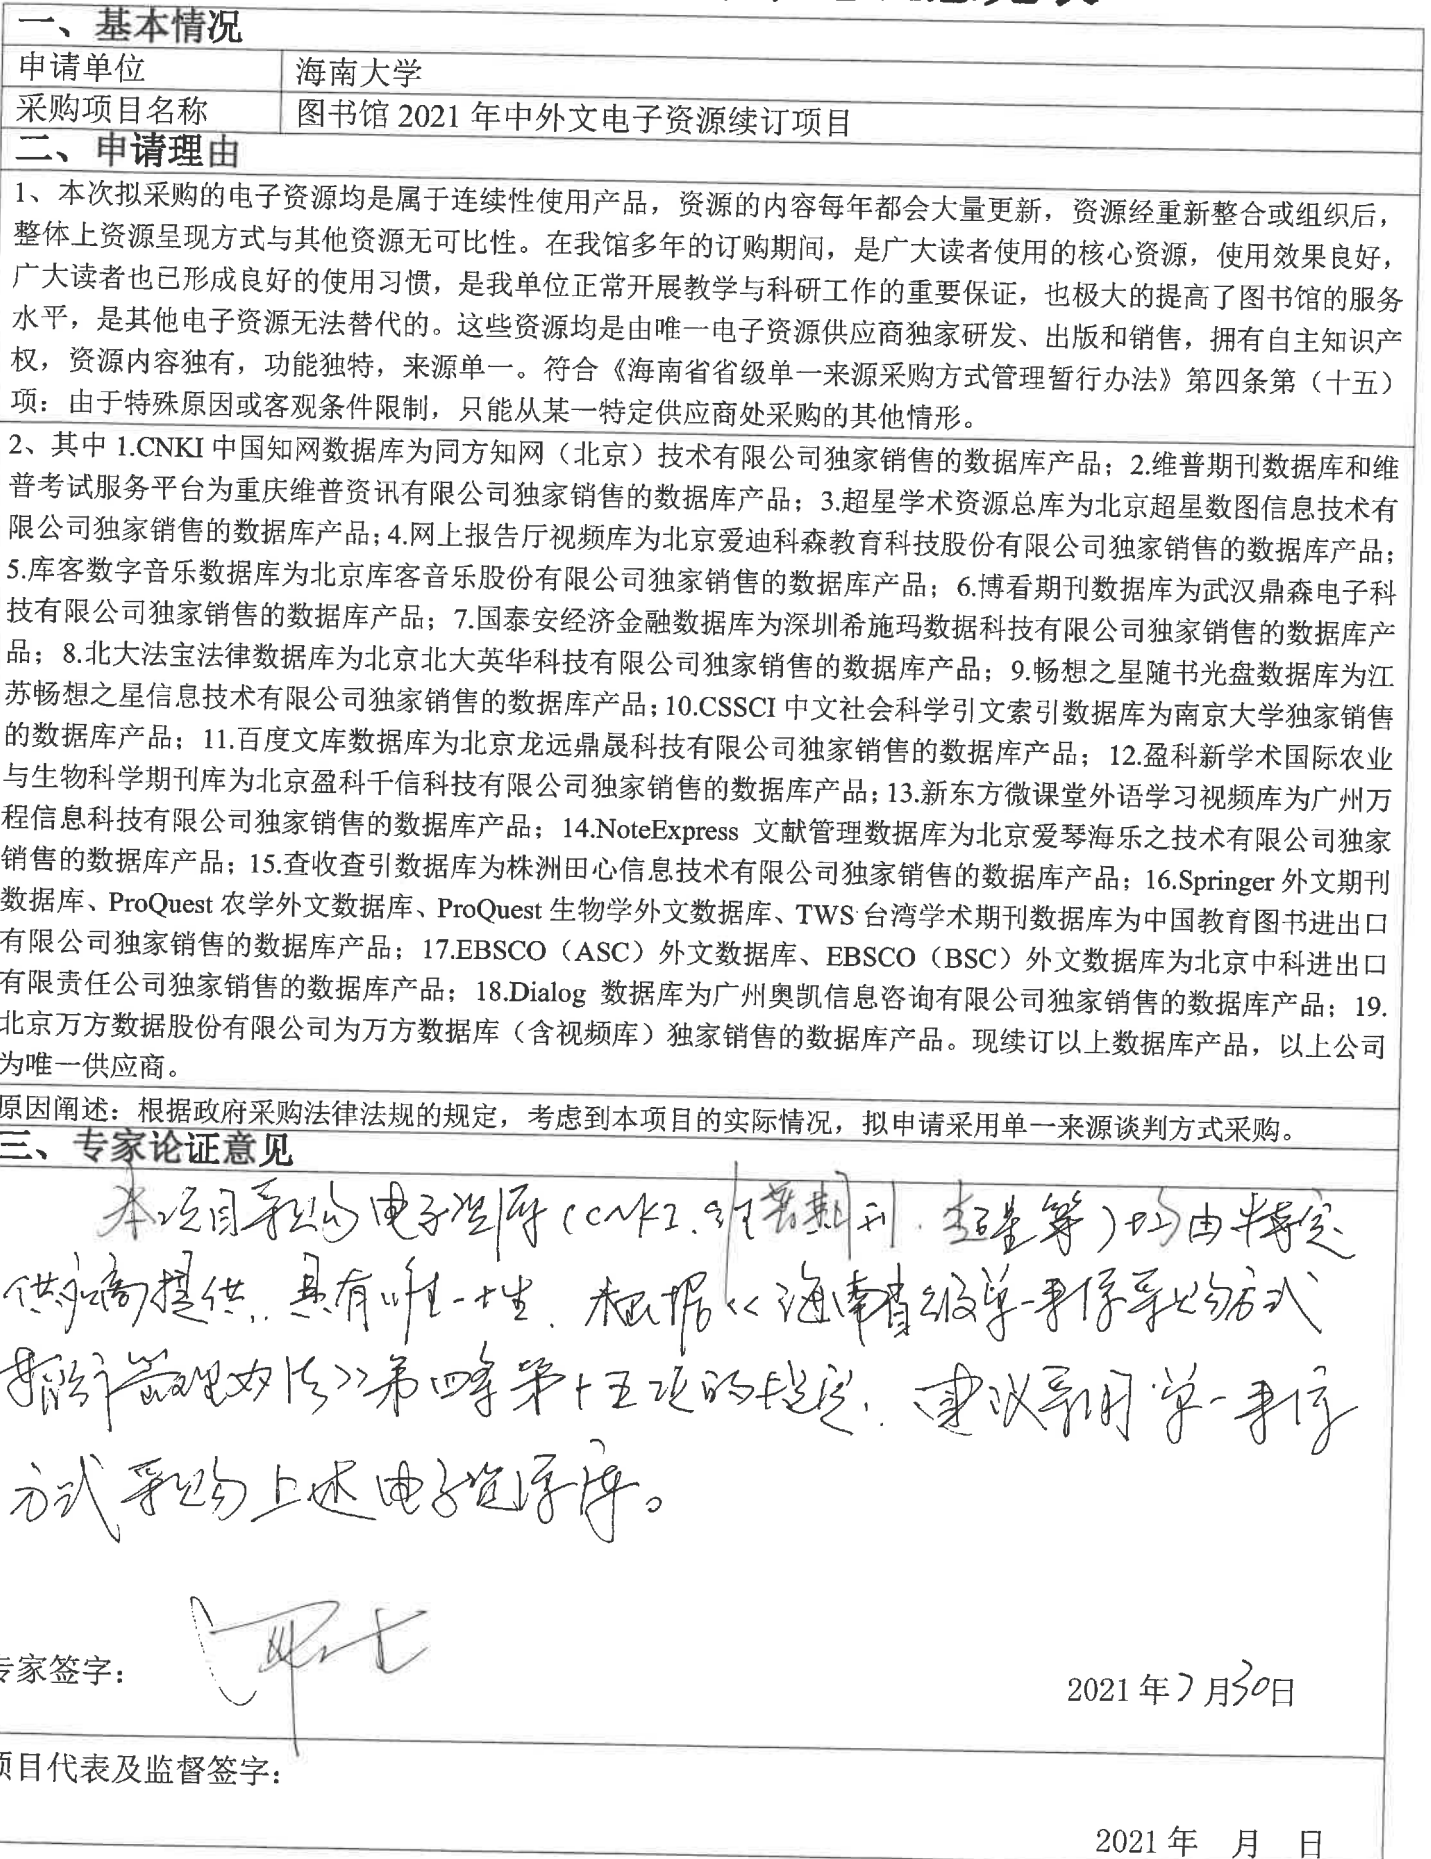 一、基本情况
申请单位
海南大学
采购项目名称
图书馆 2021 年中外文电子资源续订项目
二、申请理由
1、本次拟采购的电子资源均是属于连续性使用产品，资源的内容每年都会大量更新，资源经重新整合或组织后，
整体上资源呈现方式与其他资源无可比性。在我馆多年的订购期间，是广大读者使用的核心资源，使用效果良好，
广大读者也已形成良好的使用习惯，是我单位正常开展教学与科研工作的重要保证，也极大的提高了图书馆的服务
水平，是其他电子资源无法替代的。这些资源均是由唯一电子资源供应商独家研发、出版和销售，拥有自主知识产
权，资源内容独有，功能独特，来源单一。符合《海南省省级单一来源采购方式管理暂行办法》第四条第（十五）
项：由于特殊原因或客观条件限制，只能从某一特定供应商处采购的其他情形。
2、其中 1.CNKI 中国知网数据库为同方知网（北京）技术有限公司独家销售的数据库产品；2.维普期刊数据库和维
普考试服务平台为重庆维普资讯有限公司独家销售的数据库产品；3.超星学术资源总库为北京超星数图信息技术有
限公司独家销售的数据库产品；4.网上报告厅视频库为北京爱迪科森教育科技股份有限公司独家销售的数据库产品；
5.库客数字音乐数据库为北京库客音乐股份有限公司独家销售的数据库产品；6.博看期刊数据库为武汉鼎森电子科
技有限公司独家销售的数据库产品；7.国泰安经济金融数据库为深圳希施玛数据科技有限公司独家销售的数据库产
品；8.北大法宝法律数据库为北京北大英华科技有限公司独家销售的数据库产品；9.畅想之星随书光盘数据库为江
苏畅想之星信息技术有限公司独家销售的数据库产品；10.CSSCI 中文社会科学引文索引数据库为南京大学独家销售
的数据库产品；11.百度文库数据库为北京龙远鼎晟科技有限公司独家销售的数据库产品；12.盈科新学术国际农业
与生物科学期刊库为北京盈科千信科技有限公司独家销售的数据库产品；13.新东方微课堂外语学习视频库为广州万
程信息科技有限公司独家销售的数据库产品；14.NoteExpress 文献管理数据库为北京爱琴海乐之技术有限公司独家
销售的数据库产品；15.查收查引数据库为株洲田心信息技术有限公司独家销售的数据库产品；16.Springer 外文期刊
数据库、ProQuest 农学外文数据库、ProQuest 生物学外文数据库、TWS 台湾学术期刊数据库为中国教育图书进出口
有限公司独家销售的数据库产品；17.EBSCO（ASC）外文数据库、EBSCO（BSC）外文数据库为北京中科进出口
有限责任公司独家销售的数据库产品；18.Dialog 数据库为广州奥凯信息咨询有限公司独家销售的数据库产品；19.
北京万方数据股份有限公司为万方数据库（含视频库）独家销售的数据库产品。现续订以上数据库产品，以上公司
为唯一供应商。
原因阐述：根据政府采购法律法规的规定，考虑到本项目的实际情况，拟申请采用单一来源谈判方式采购。
三、专家论证意见
本项目采购的电子资源库(CNKI、维普期刊、超星等)均由特定
供应商提供，具有唯一性，根据《海南省级单一来源采购方式
暂行管理办法》第四条第十五项的规定，建议采用单一来源
方式采购上述电子资源库。
专家签字：
2021 年 7 月 30 日
项目代表及监督签字：
2021 年 月 日